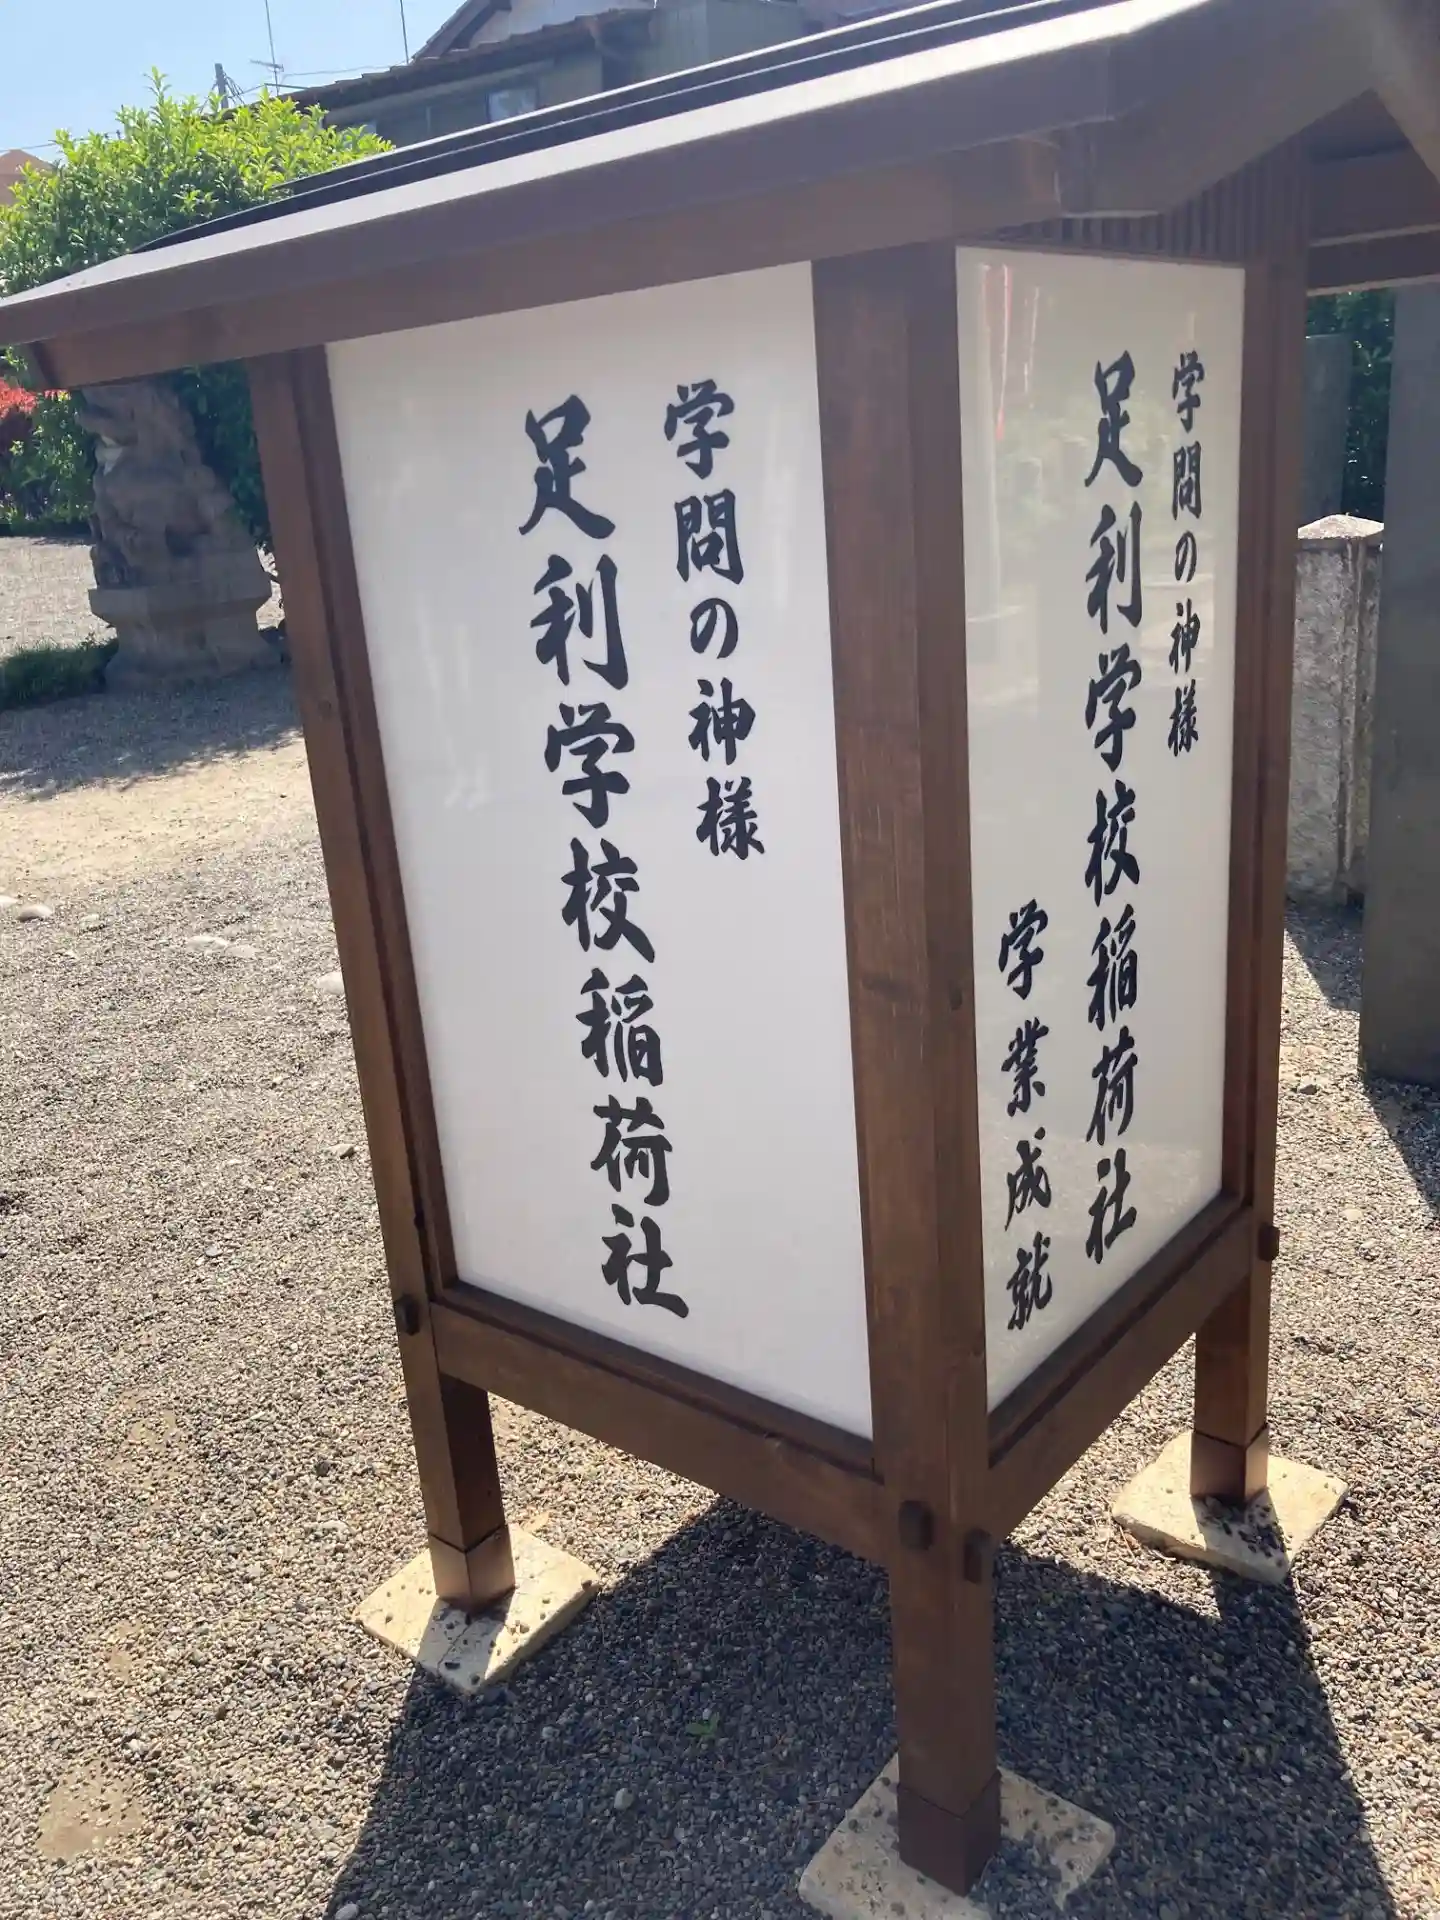 学問の神様
足利学校稲荷社
学問の神様
足利学校稲荷社
学業成就